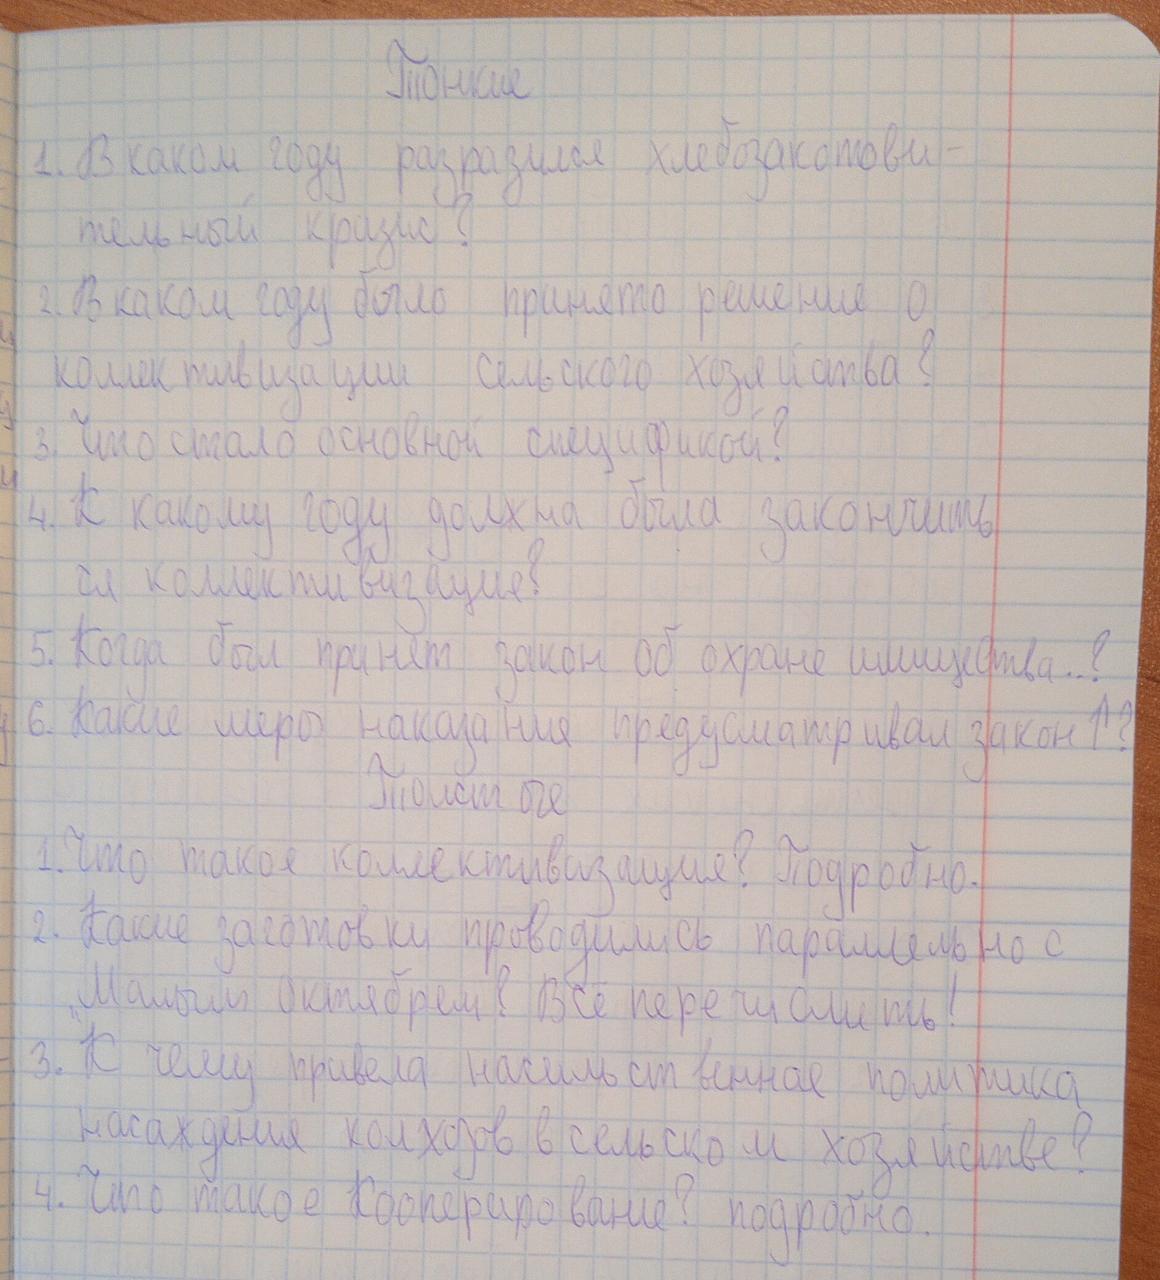 Тонкие
1. В каком году разразился хлебозакотови-
тельный кразис?
2. В каком году было принято решение о
коллективизации сельского хозяйства?
3. Что стало основной спецификой?
4. К какому году должна была закончить
ся коллективизация?
5. Когда был принят закон об охране имищества..?
6. Какие меры наказания предусматривал закон ↑?
Толстые
1. Что такое коллективизация? Подробно.
2. Какие заготовки проводились параллельно с
"Малым октябрем? Всё перечислить!
3. К чему привела насильственная политика
насаждения колхозов в сельском хозяйстве?
4. Что такое Кооперирование? подробно.